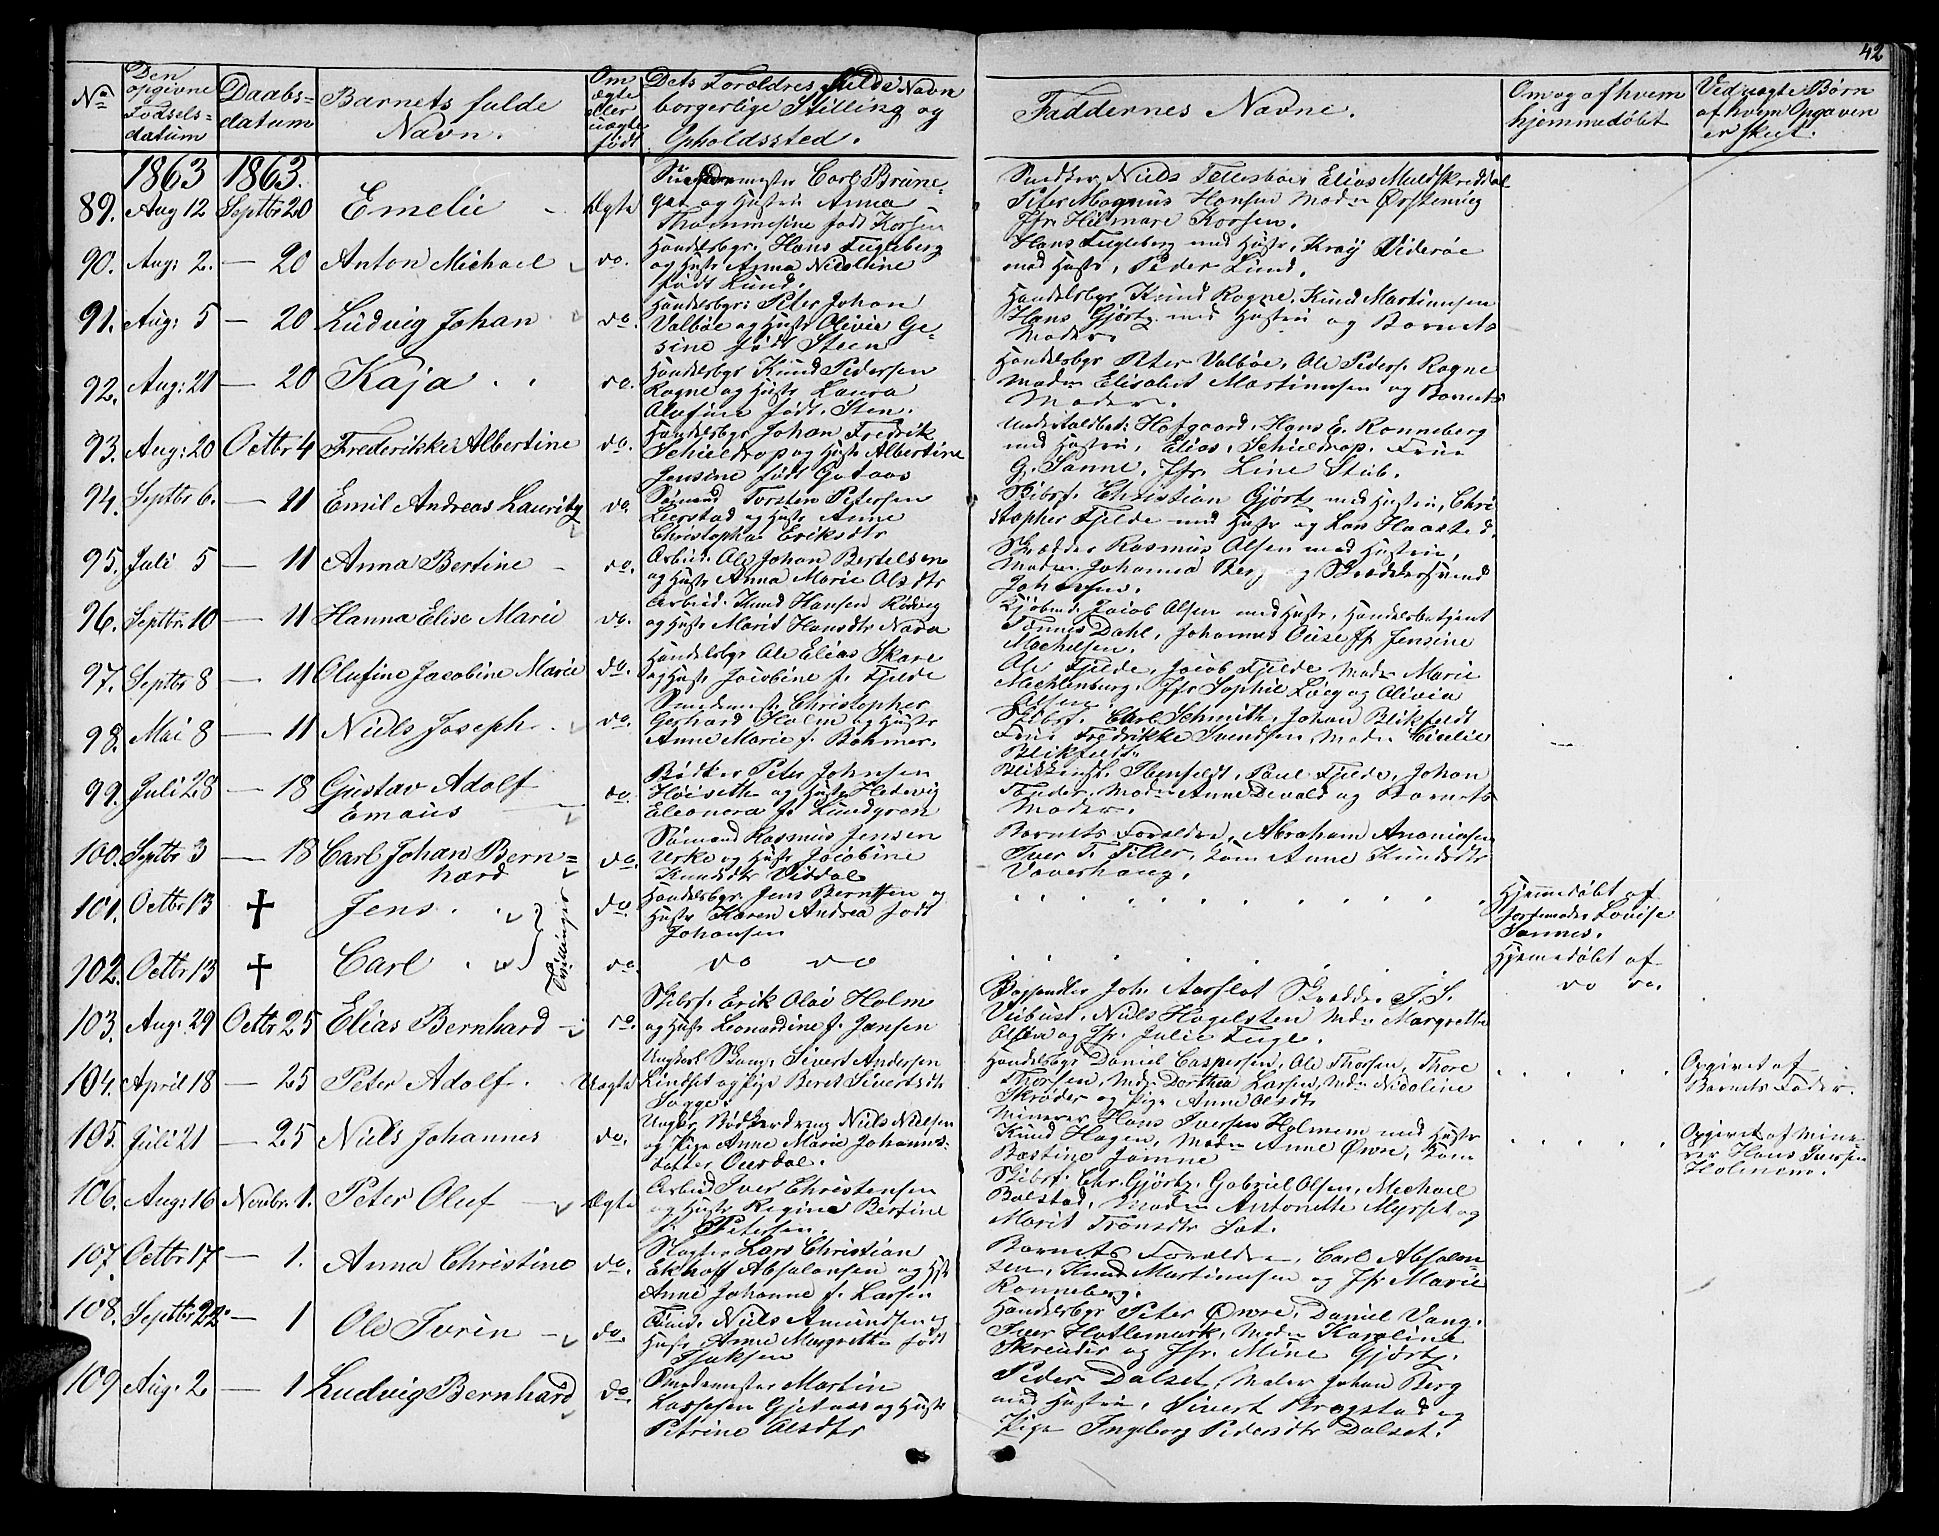 42
No
Den opgivne Fødselsdatum
Daabsdatum
Barnets fulde Navn.
Om ægte eller uægte født
Dets Forældres fulde Navn borgerlige Stilling og Opholdssted.
Faddernes Navne.
Om og af hvem hjemmedøbt
Ved uægte Børn af hvem Opgaven er skeet.
1863 1863.
89. Aug 12 Septbr 20 Emelie Ægte
Carl Brune-
og Hustru Anna
Peter Magnus Hansen
90. Aug: 2. — 20 Anton Michael do.
Handelsbgr. Hans Fugleberg
og Hustr Anna Nicoline
født Lund.
Hans Fugleberg med Hustr,
med Hustr, Peder Lund.
91. Aug: 5 — 20 Ludvig Johan do.
Handelsbgr: Peter Johan
Valbøe og Hustr Olivia Ge-
sine født Steen
Handelsbgr Knud Rogne, Knud Martinusen
Hans Gjørtz med Hustru og Barnets
Moder.
92. Aug: 21 — 20 Kaja do.
Handelsbgr Knud Pedersen
Rogne og Hustr Laura
Olufine født Sten.
Handelsbgr Peter Valbøe, Ole Peders. Rogne
Madm Elisabet Martinusen og Barnets
Moder.
93. Aug: 20 Octbr 4 Frederikke Albertine do.
Handelsbgr Johan Fredrik
Schieldrop og Hustr Albertine
Jensine født
Hofgaard, Hans E. Ronneberg
med Hustru, Elias Schieldrop, Frue
G. Sanne, Jfr. Line Stub.
94. Septbr 6. — 11 Emil Andreas Lauritz do.
Sømand Torsten Petersen
Leerstad og Hustr Anne
Christopha Eriksdtr
Skibsf. Christian Gjørtz med Hustru, Chri
stopher Fjelde med Hustr og Lars Haastad.
95. Juli 5 — 11 Anna Bertine do.
Arbeid. Ole Johan Bertelsen
og Hustr Anna Marie Olsdtr
Skrædder Rasmus Olsen med Hustrue,
Madm Johanna Berg og Skræddersvend
Johansen.
96. Septbr. 10 — 11 Hanna Elise Marie do.
Arbeid. Knud Hansen Rødvig
og Hustr Marit Hansdtr
Kjøbmd. Jacob Olsen med Hustr, Handelsbetjent
Tønnes Dahl, Johannes Ouse Jfr Jensine
Mechelsen.
97. Septbr 8 — 11 Olufine Jacobine Marie do.
Handelsbgr Ole Elias Skare
og Hustr Jacobine f. Fjelde
Ole Fjelde, Jacob Fjelde, Madm Marie
Mechlenburg, Jfr Sophie og Olivia
Olsen.
98. Mai 8 — 11 Niels Joseph do.
Christopher
Gerhard Holm og Hustr
Anne Marie f. Bøhmer.
Skibsf. Carl Schmith, Johan Blikfeldt
Frue Fredrikke Svendsen, Madm Cecilie
Blikfeldt.
99. Juli 28 — 18 Gustav Adolf
Emaus do.
Bødker Peter Johnsen
Høiseth og Hustr Hedevig
Eleonora f. Lundgren
Paul Fjelde, Johan
Madm Anne Devold og Barnets
Moder.
100. Septbr 3 — 18 Carl Johan Bern=
hard do.
Sømand Rasmus Jensen
Urke og Hustr Jacobine
Knudsdtr Viddal
Barnets Forældre, Abraham Ananiasen
Iver T. Filler, Anne Knudsdtr
Vaverhaug.
101. Octbr. 13 ✝ Jens do.
Handelsbgr. Jens Berntsen og
Hustr Karen Andrea født
Johansen
Hjemmedøbt af
Jordmoder Louise
Sannes.
102. Octbr 13 ✝ Carl do.
Tvillinger
do do
Hjemmedøbt af
do do.
103. Aug: 29 Octbr 25 Elias Bernhard do.
Skibsf. Erik Olai Holm
og Hustr Leonardine f. Jansen
Joh. Aarflot Skrædder T. S.
Viibust, Niels Hagelsten Mdm Margrethe
Olsen og Jfr. Julie Fuge.
104. April 18 — 25 Peter Adolf Uægte
Ungkarl Sivert Andersen
Lindset og Pige Beret Sivertsdtr
Handelsbgr Daniel Caspersen, Ole Thorsen, Thore
Thorsen, Mdm Dorthea Larsen, Mdm Nicoline
Skrøder og Pige Anne Olsdtr
Opgivet af
Barnets Fader.
105. Juli 21 — 25 Niels Johannes do.
Ungkr. Bødkerdreng Niels Nielsen
og Pige Anne Marie Johannes-
datter Oursdal.
Minerer Hans Iversen Holmem med Hustr
Knud Hagen, Madm Anne Øwre,
Bastine Jamne
Opgivet af Mine
rer Hans Iversen
Holmem.
106. Aug: 16 Novbr. 1. Peter Oluf Ægte
Arbeid Iver Christensen
og Hustr Regine Bertine
f. Petersen.
Skibsf. Chr. Gjørtz. Gabriel Olsen, Michael
Balstad, Madm Antonette Myrset og
Marit
107. Octbr 17 — 1. Anna Christine do.
Slagter Lars Christian
Ekhoff Absalonsen og Hstr
Anne Johanne f. Larsen
Barnets Forældre, Carl Absalon=
sen, Knud Martinusen og Jfr Marie
Ronneberg.
108. Septbr 22. — 1 Ole Iverin do.
Niels Amundsen og
Hustr Anne Margrethe født
Isaksen
Handelsbgr Peter Øwre, Daniel Vang.
Iver Hatlemark, Madm Karoline
og Jfr. Mine Gjørtz.
109. Aug: 2 — 1 Ludvig Bernhard do.
Martin
Lassesen Gjetaas og Hustr
Petrine Olsdtr
Peder Dalset, Maler Johan Berg
med Hustru, Sivert Brogstad og
Pige Ingeborg Pedersdtr Dalset.